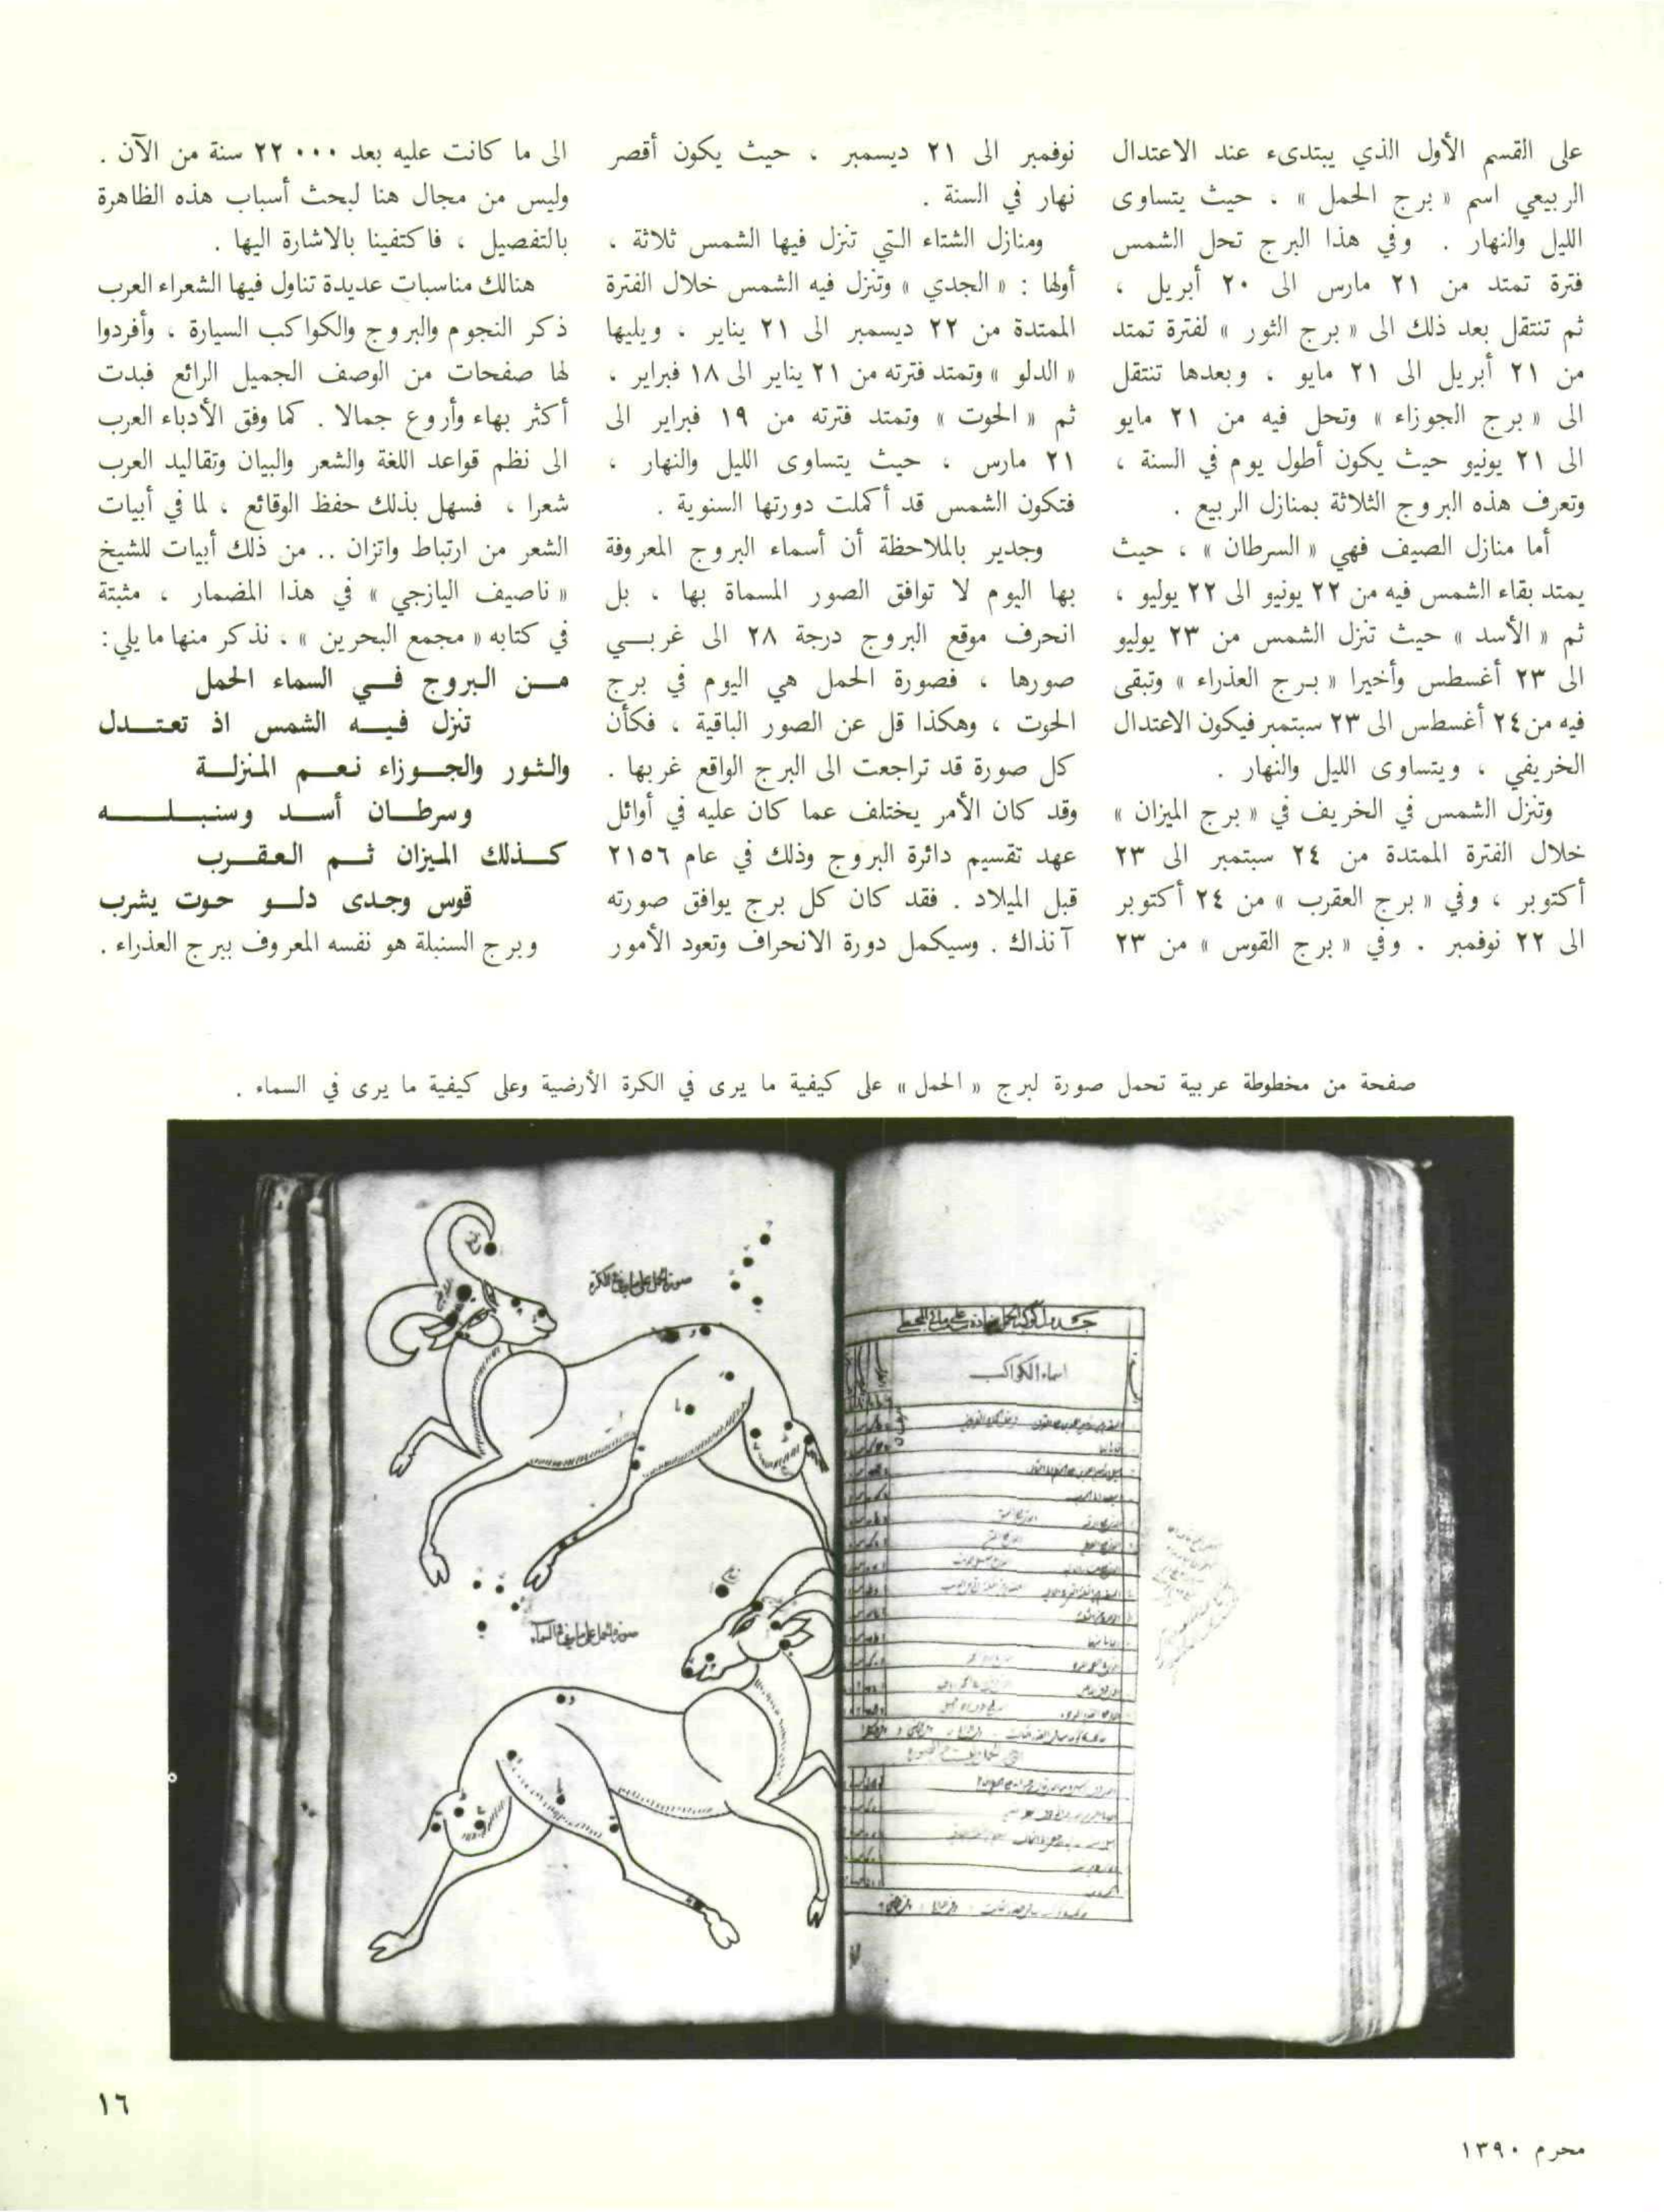 على القسم الأول الذي يبتدىء عند الاعتدال
الربيعي اسم « برج الحمل » ، حيث يتساوى
الليل والنهار . وفي هذا البرج تحل الشمس
فترة تمتد من ٢١ مارس الى ٢٠ أبريل ،
ثم تنتقل بعد ذلك الى « برج الثور » لفترة تمتد
من ٢١ أبريل الى ٢١ مايو ، وبعدها تنتقل
الى « برج الجوزاء » وتحل فيه من ٢١ مايو
الى ٢١ يونيو حيث يكون أطول يوم في السنة ،
وتعرف هذه البروج الثلاثة بمنازل الربيع .
أما منازل الصيف فهي « السرطان » ، حيث
يمتد بقاء الشمس فيه من ٢٢ يونيو الى ٢٢ يوليو ،
ثم « الأسد » حيث تنزل الشمس من ٢٣ يوليو
الى ٢٣ أغسطس وأخيرا « برج العذراء » وتبقى
فيه من ٢٤ أغسطس الى ٢٣ سبتمبر فيكون الاعتدال
الخريفي ، ويتساوى الليل والنهار .
وتنزل الشمس في الخريف في « برج الميزان »
خلال الفترة الممتدة من ٢٤ سبتمبر الى ٢٣
أكتوبر ، وفي « برج العقرب » من ٢٤ أكتوبر
الى ٢٢ نوفمبر . وفي « برج القوس » من ٢٣
نوفمبر الى ٢١ ديسمبر ، حيث يكون أقصر
نهار في السنة .
ومنازل الشتاء التي تنزل فيها الشمس ثلاثة ،
أولها : « الجدي » وتنزل فيه الشمس خلال الفترة
الممتدة من ٢٢ ديسمبر الى ٢١ يناير ، ويليها
« الدلو » وتمتد فترته من ٢١ يناير الى ١٨ فبراير ،
ثم « الحوت » وتمتد فترته من ١٩ فبراير الى
٢١ مارس ، حيث يتساوى الليل والنهار ،
فتكون الشمس قد أكملت دورتها السنوية .
وجدير بالملاحظة أن أسماء البروج المعروفة
بها اليوم لا توافق الصور المسماة بها ، بل
انحرف موقع البروج درجة ٢٨ الى غربي
صورها ، فصورة الحمل هي اليوم في برج
الحوت ، وهكذا قل عن الصور الباقية ، فكأن
كل صورة قد تراجعت الى البرج الواقع غربها .
وقد كان الأمر يختلف عما كان عليه في أوائل
عهد تقسيم دائرة البروج وذلك في عام ٢١٥٦
قبل الميلاد . فقد كان كل برج يوافق صورته
آنذاك . وسيكمل دورة الانحراف وتعود الأمور
الى ما كانت عليه بعد ٢٢٠٠٠ سنة من الآن .
وليس من مجال هنا لبحث أسباب هذه الظاهرة
بالتفصيل ، فاكتفينا بالاشارة اليها .
هنالك مناسبات عديدة تناول فيها الشعراء العرب
ذكر النجوم والبروج والكواكب السيارة ، وأفردوا
لها صفحات من الوصف الجميل الرائع فبدت
أكثر بهاء وأروع جمالا . كما وفق الأدباء العرب
الى نظم قواعد اللغة والشعر والبيان وتقاليد العرب
شعرا ، فسهل بذلك حفظ الوقائع ، لما في أبيات
الشعر من ارتباط واتزان .. من ذلك أبيات للشيخ
« ناصيف اليازجي » في هذا المضمار ، مثبتة
في كتابه « مجمع البحرين » ، نذكر منها ما يلي :
من البروج في السماء الحمل
تنزل فيه الشمس اذ تعتدل
والثور والجوزاء نعم المنزلة
وسرطان أسد وسنبله
كذلك الميزان ثم العقرب
قوس وجدى دلو حوت يشرب
وبرج السنبلة هو نفسه المعروف ببرج العذراء .
صفحة من مخطوطة عربية تحمل صورة لبرج « الحمل » على كيفية ما يرى في الكرة الأرضية وعلى كيفية ما يرى في السماء .
صورة الحمل على ما يرى في الكرة
اسماء الكواكب
صورة الحمل على ما يرى في السماء
١٦
محرم ١٣٩٠